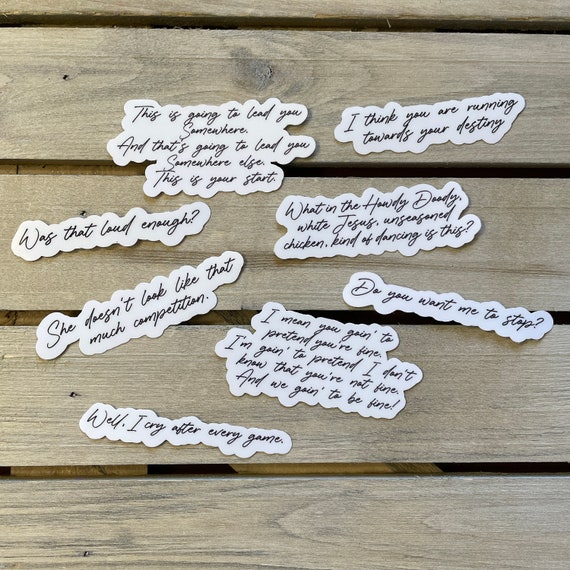 This is going to lead you
Somewhere.
And that's going to lead you
Somewhere else.
This is your start.
I think you are running
towards your destiny
Was that loud enough?
What in the Howdy Doody,
white Jesus, unseasoned
chicken, kind of dancing is this?
She doesn't look like that
much competition.
Do you want me to stop?
I mean you goin' to
pretend you're fine,
I'm goin' to pretend I don't
know that you're not fine,
And we goin' to be fine!
Well, I cry after every game.